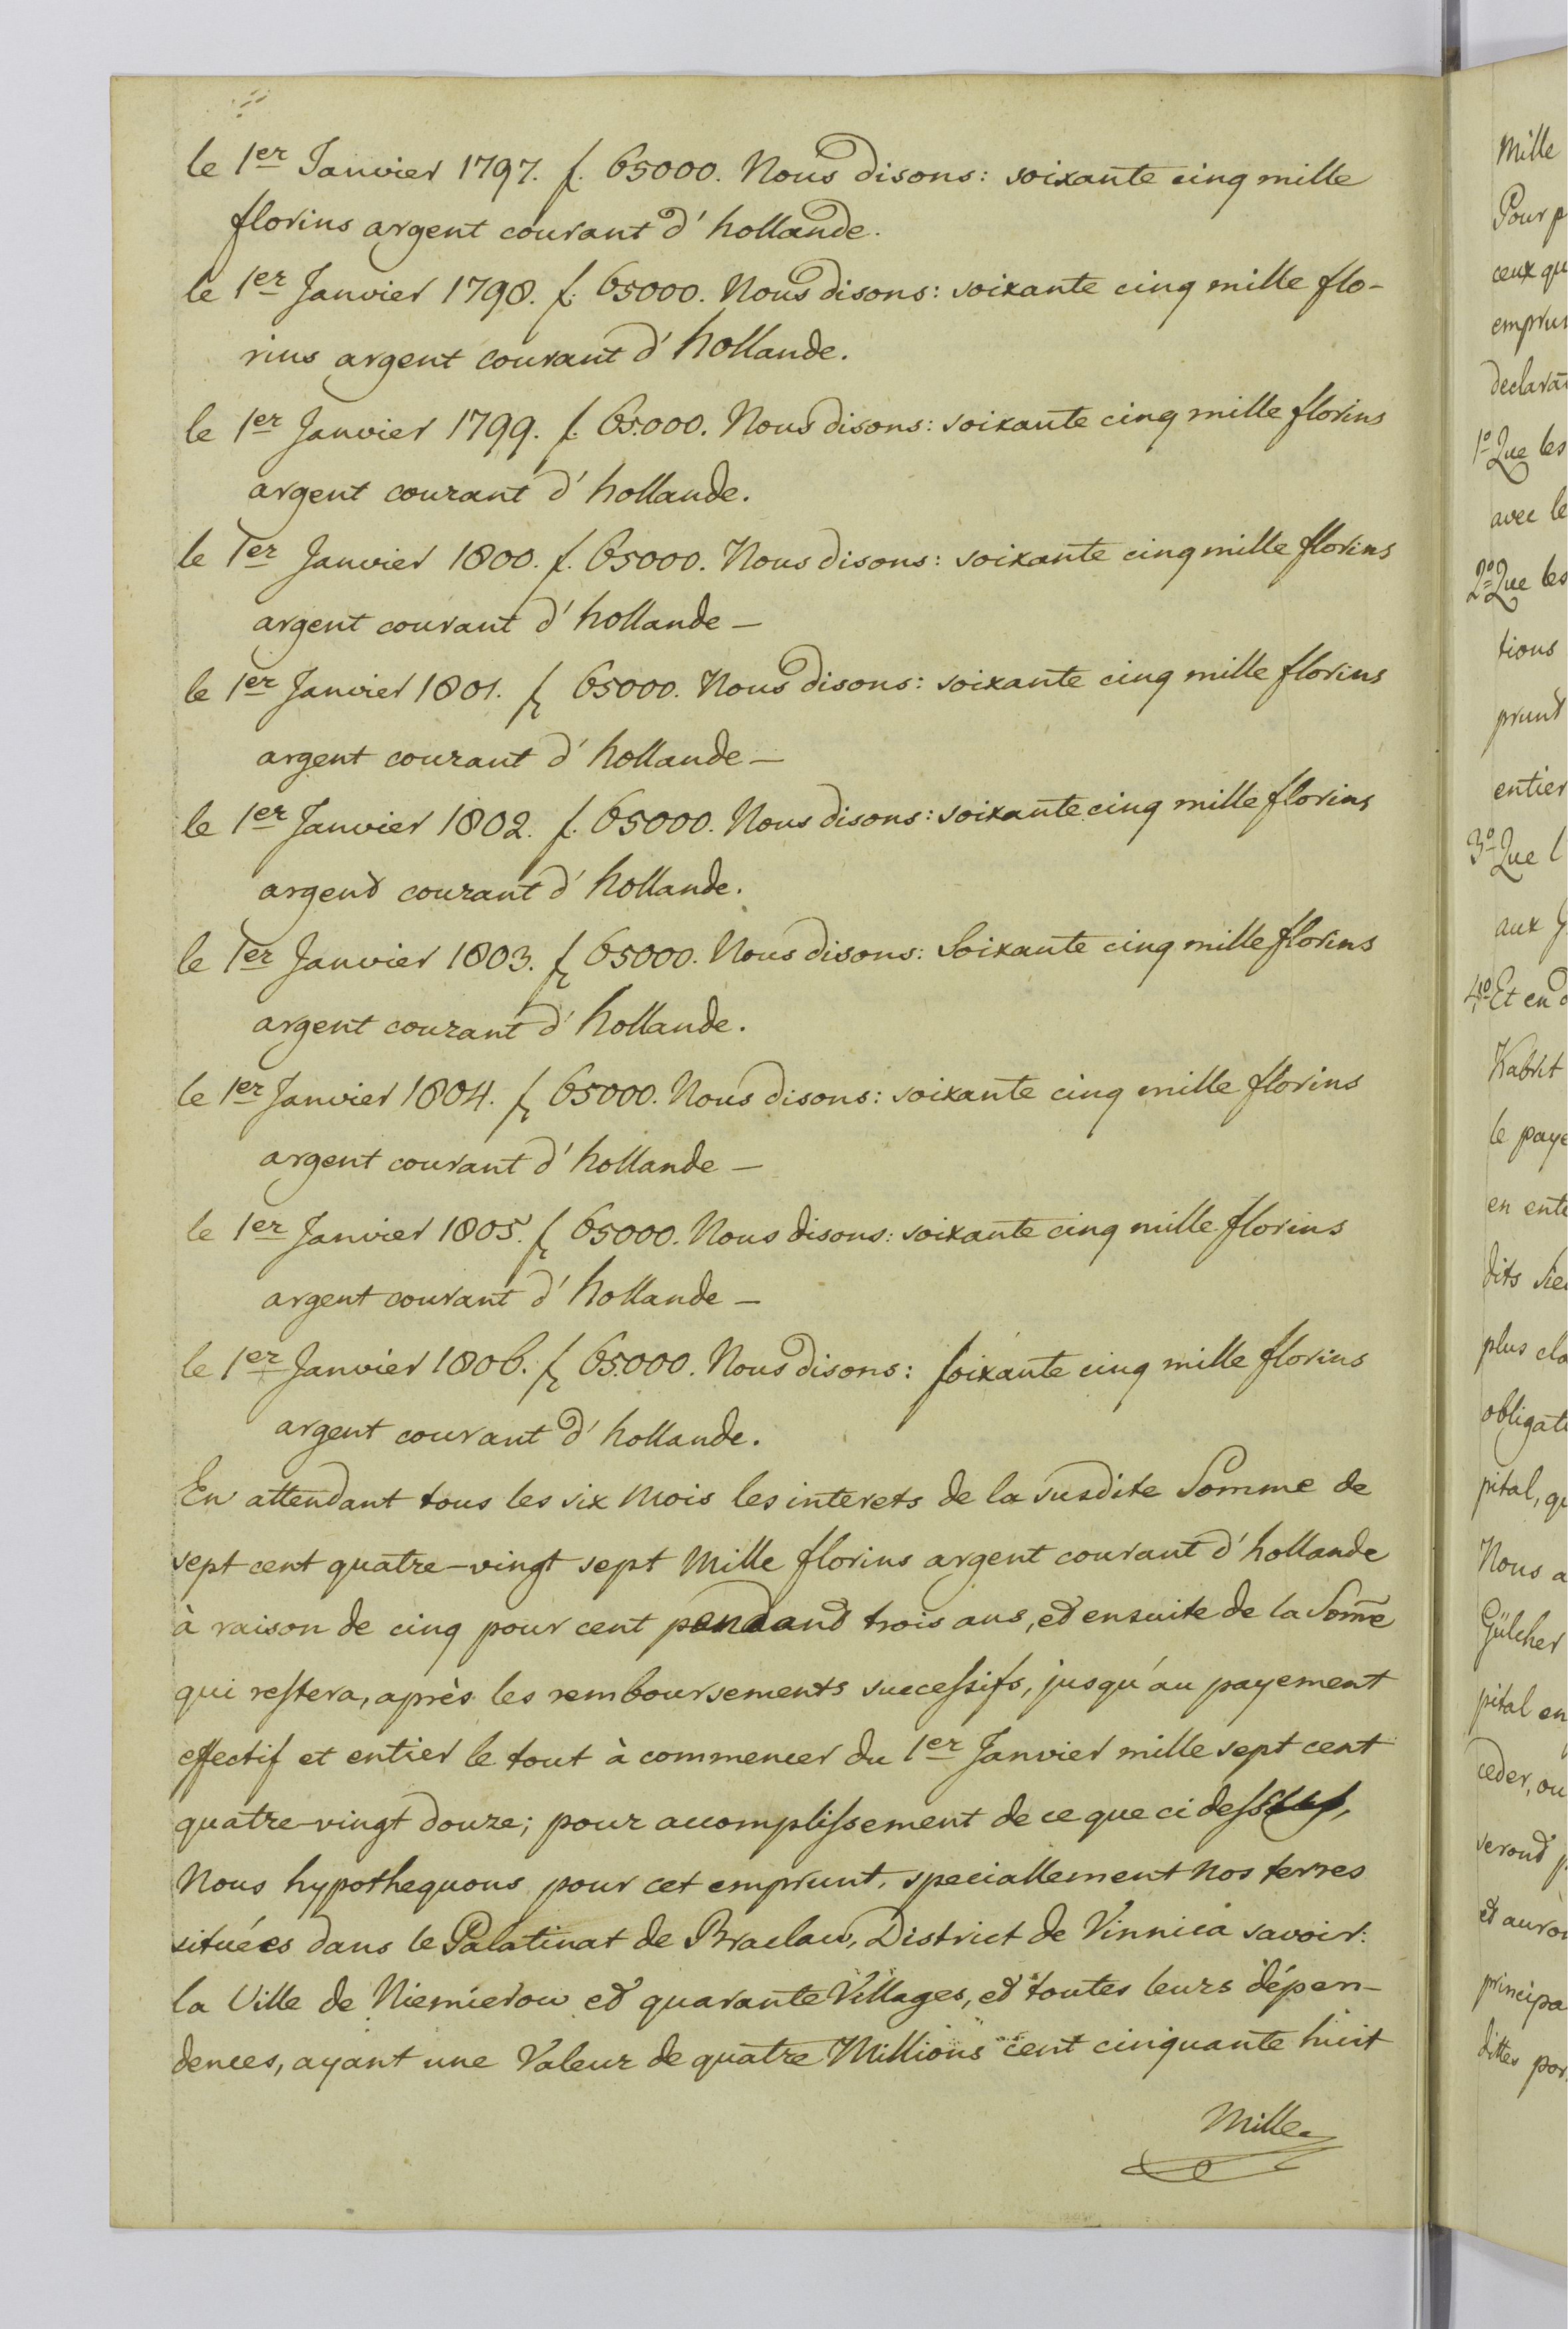 le 1er Janvier 1797. f. 65000. Nous disons: soixante cinq mille
florins argent courant d'hollande.
le 1er Janvier 1798. f. 65000. Nous disons: soixante cinq mille flo-
rins argent courant d'hollande.
le 1er Janvier 1799. f. 65.000. Nous disons: soixante cinq mille florins
argent courant d'hollande.
le 1er Janvier 1800. f. 65000. Nous disons: soixante cinq mille florins
argent courant d'hollande —
le 1er Janvier 1801. f 65000. Nous disons: soixante cinq mille florins
argent courant d'hollande —
le 1er Janvier 1802. f. 65000. Nous disons: soixante cinq mille florins
argent courant d'hollande.
le 1er Janvier 1803. f 65000. Nous disons: Soixante cinq mille florins
argent courant d'hollande.
le 1er Janvier 1804. f 65000. Nous disons: soixante cinq mille florins
argent courant d'hollande —
le 1er Janvier 1805. f 65000. Nous disons: soixante cinq mille florins
argent courant d'hollande —
le 1er Janvier 1806. f 65.000. Nous disons: soixante cinq mille florins
argent courant d'hollande.
En attendant tous les six Mois les interets de la susdite Somme de
sept cent quatre-vingt sept Mille florins argent courant d'hollande
à raison de cinq pour cent pendant trois ans, et ensuite de la Som̄e
qui restera, après les remboursements successifs, jusqu'au payement
effectif et entier le tout à commencer du 1er Janvier mille sept cent
quatre-vingt douze; pour accomplissement de ce que ci dessus,
Nous hypothequons pour cet emprunt, speciallement Nos terres
situées dans le Palatinat de Braclaw, District de Vinnica savoir:
la Ville de Niemierow et quarante Villages, et toutes leurs dépen-
dences, ayant une Valeur de quatre Millions cent cinquante huit
Mille
Mille
Pour p
ceux qu
emprun
declarat
1o Que les
avec le
2o Que les
tions
prunt
entier
3o Que l
aux
4o Et en d
Kabrit
le paye
en ente
dits Sie
plus cla
obligati
pital, qu
Nous a
Gülcher
pital en
ceder, ou
seront p
et auron
principa
dittes por